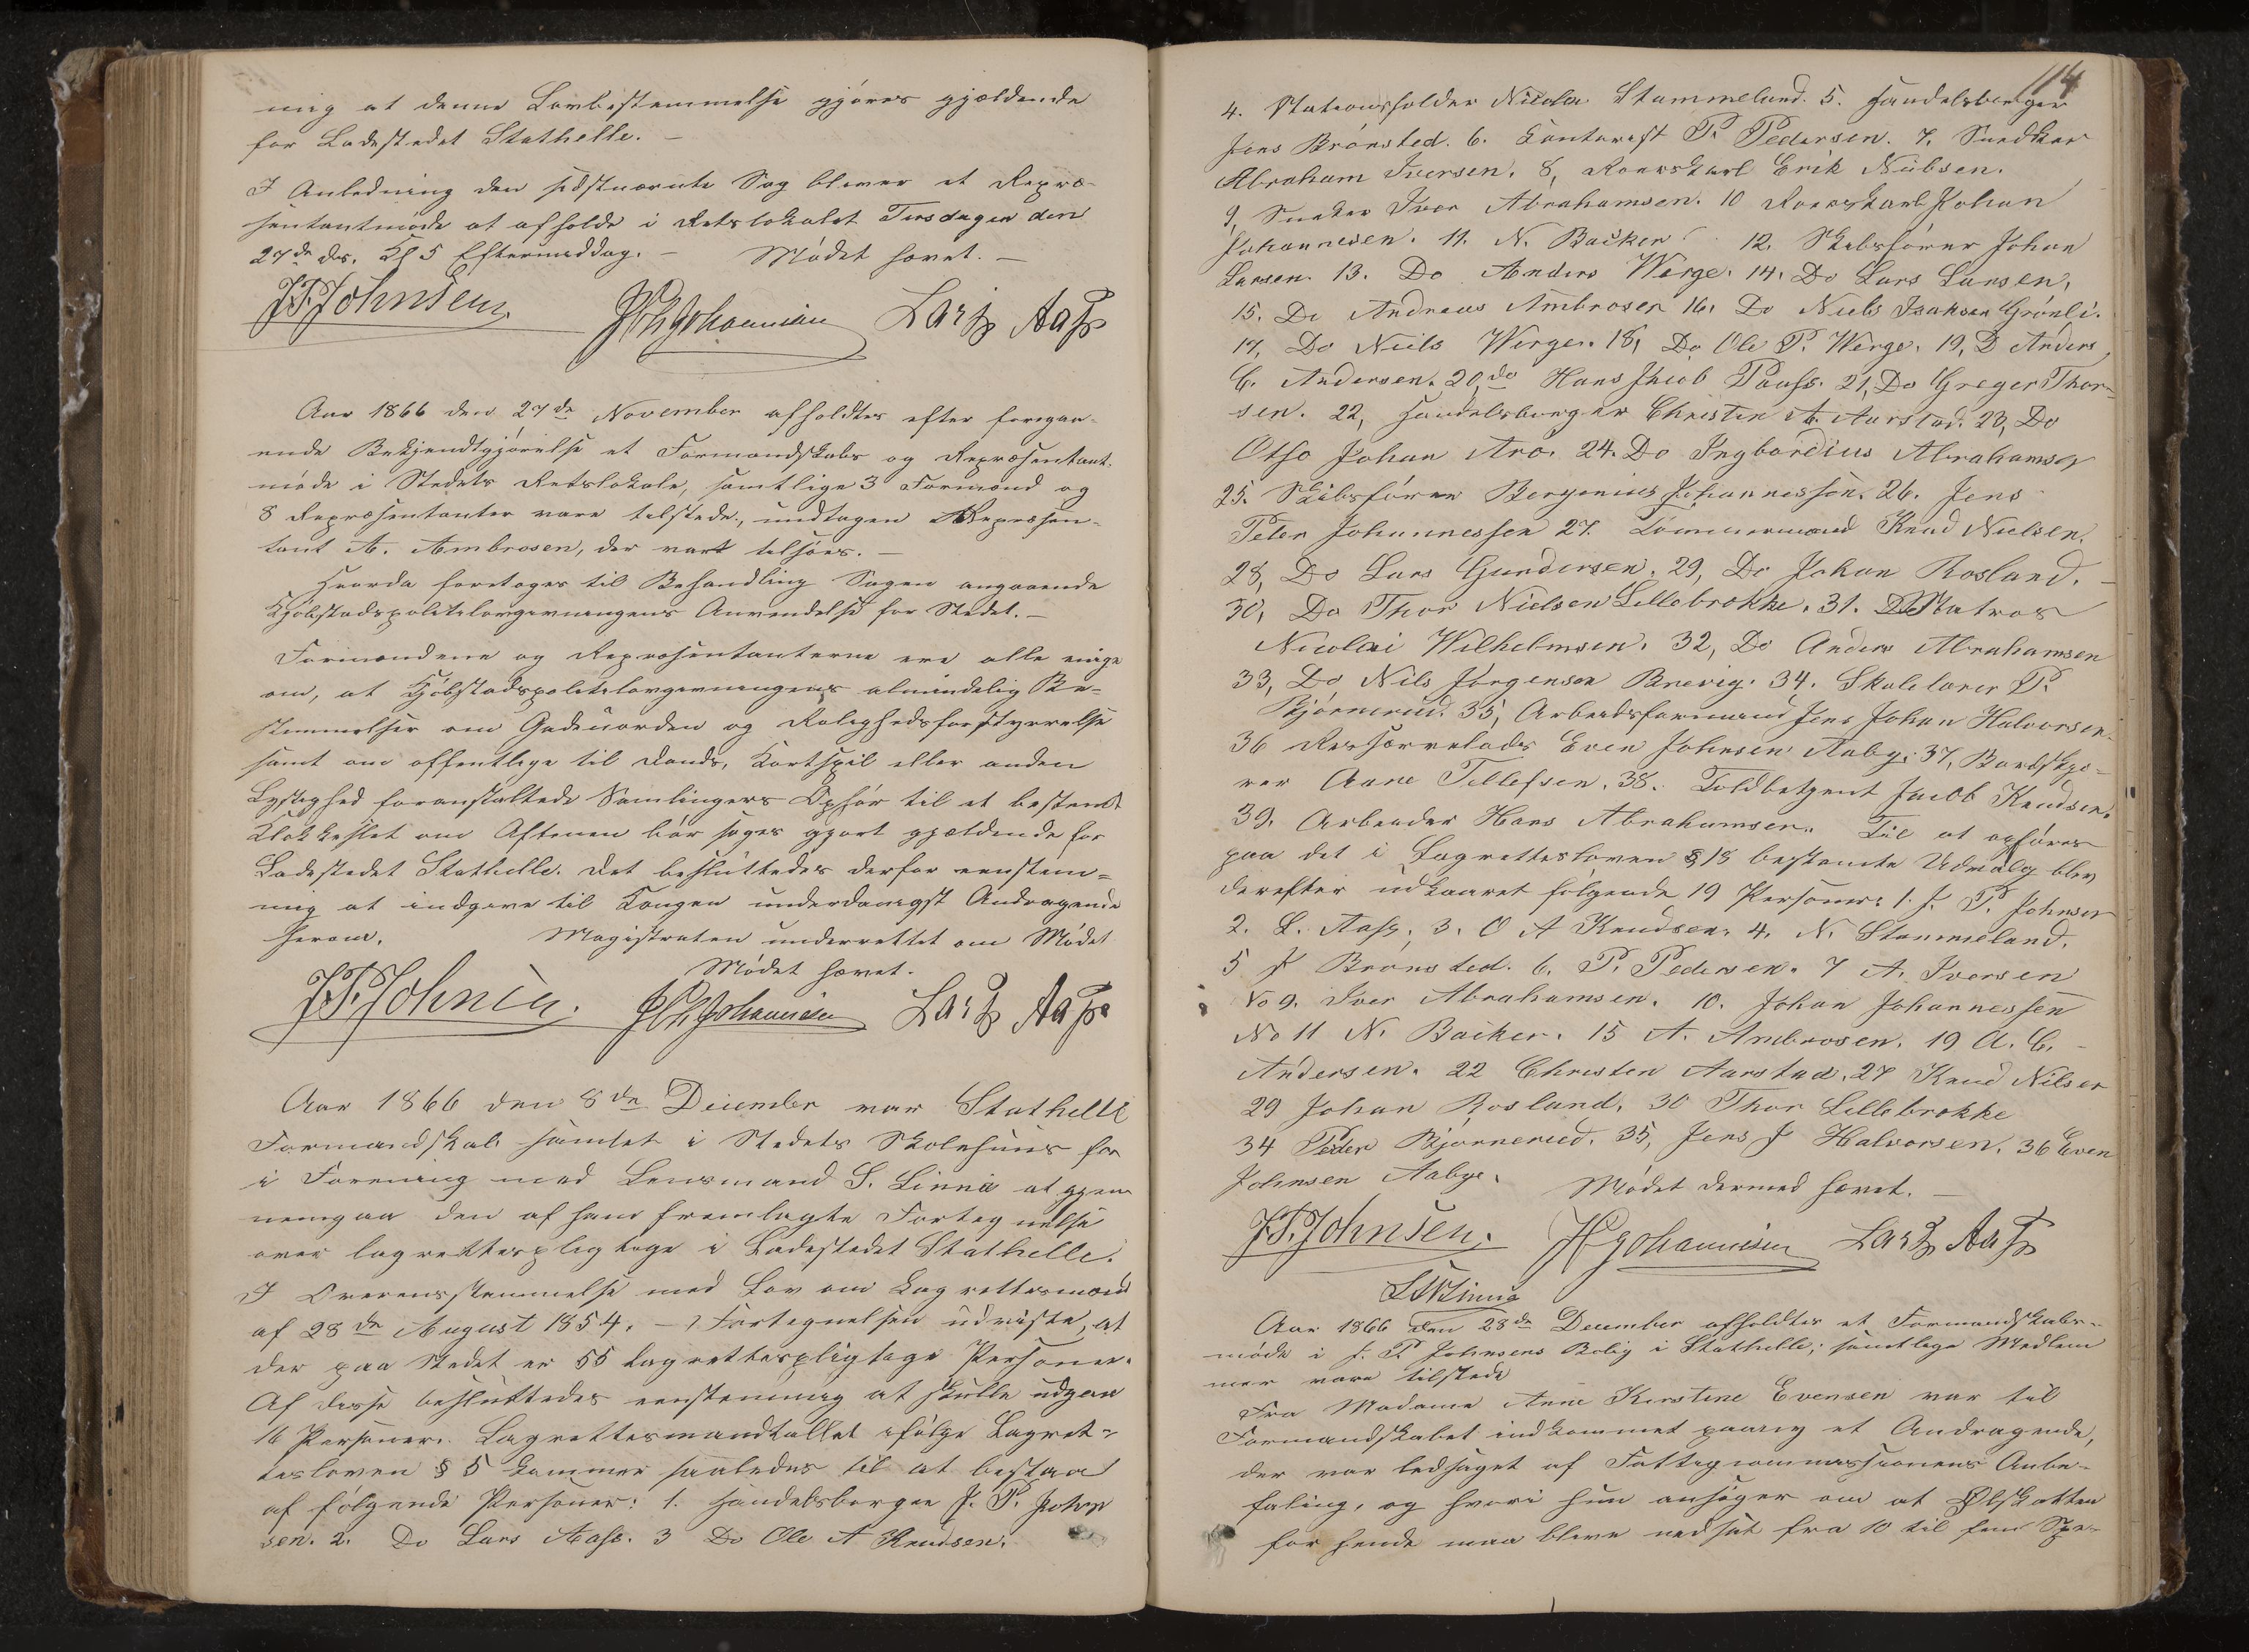 mig at denne Lovbestemmelse gjøres gjældende
for Ladestedet Stathelle. —
I Anledning den sidstnævnte Sag bliver et Repræ-
sentantmøde at afholde i Retslokalet Tirsdagen den
27de ds. Kl 5 Eftermiddag. — Mødet hævet. —
J.P. Johnsen Johannesen Lars Aasz
Aar 1866 den 27de November afholdtes efter foregaa-
ende Bekjendtgjørelse et Formandskabs og Repræsentant-
møde i Stedets Retslokale, samtlige 3 Formænd og
8 Repræsentanter vare tilstede, undtagen Repræsen-
tant A. Ambrosen, der var tilsøes. —
Hvorda foretoges til Behandling Sagen angaaende
Kjøbstadspolitilovgivningens Anvendelse for Stedet. —
Formændene og Repræsentanterne ere alle enige
om, at Kjøbstadspolitilovgivningens almindelig Be-
stemmelser om Gadeuorden og Rolighedsforstyrrelse
samt om offentlige til Dands, Kortspil eller anden
Lystighed foranstaltede Samlingers Ophør til et bestemt
Klokkeslet om Aftenen bør søges gjort gjældende for
Ladestedet Stathelle. Det besluttedes derfor eenstem-
mig at indgive til Kongen underdanigst Andragende
herom. Magistraten underrettet om Mødet
Mødet hævet.
J.P. Johnsen. Johannesen Lars Aasz
Aar 1866 den 8de December var Stathelle
Formandskab samlet i Stedets Skolehuus for
i Forening med Lensmand S. Linnie at gjen-
nemgaa den af ham fremlagte Fortegnelse
over lagrettespligtige i Ladestedet Stathelle.
I Overensstemmelse med Lov om Lagrettesmænd
af 28de August 1854. — Fortegnelsen udviste, at
der paa Stedet er 55 lagrettespligtige Personer.
Af disse besluttedes eenstemmig at skulle udgaa
16 Personer. Lagrettesmandtallet ifølge Lagret-
tesloven § 5 kommer saaledes til at bestaa
af følgende Personer: 1. Handelsborger J. P. John
sen. 2. Do Lars Aass. 3 Do Ole A Knudsen.
114
4. Stationsholder Nicolai Stammeland. 5. Handelsborger
Jens Brønsted. 6. Contorist P. Pedersen. 7. Snedker
Abraham Iversen. 8, Roerskarl Erik Nielsen.
9. Snedker Iver Abrahamsen. 10 Roerskarl Johan
Johannesen. 11. N. Backer. 12. Skibsfører Johan
Larsen. 13. Do Anders Werge. 14. Do Lars Larsen,
15. Do Andreas Ambrosen 16. Do Niels Isaksen Grønli.
17, Do Niels Werge. 18, Do Ole P. Werge. 19, D Anders
C. Andersen. 20, do Hans Jacob Paus. 21, Do Greger Thor-
sen. 22, Handelsborger Christen A. Aarstad. 23, Do
Otho Johan Aro. 24. Do Ingbordius Abrahamsen
25. Skibsfører Bergenius Johannessen. 26. Jens
Peter Johannessen 27. Tømmermand Knud Nielsen.
28, Do Lars Gundersen. 29, Do Johan Rosland. —
30, Do Thor Nielsen Lillebrokke. 31. Matros
Nicolai Wilhelmsen. 32, Do Anders Abrahamsen
33, Do Nils Jørgensen Brevig. 34. Skolelærer P.
Bjørnerud. 35, Arbeidsformand Jens Johan Halvorsen
36 Even Johnsen Aaby. 37, Bordskjæ-
rer Aane Tellefsen. 38. Toldbetjent Jacob Knudsen.
39. Arbeider Hans Abrahamsen. Til at opføres
paa det i Lagrettesloven § 18 bestemte Udvalg blev
derefter udkaaret følgende 19 Personer: 1. J. P. Johnsen
2. L. Aass, 3. O A Knudsen. 4. N. Stammeland.
5 J Brønsted. 6. P. Pedersen. 7 A. Iversen
No 9. Iver Abrahamsen. 10. Johan Johannessen
No 11 N. Backer. 15 A. Ambrosen. 19 A. C. —
Andersen. 22 Christen Aarstad. 27 Knud Nilsen
29 Johan Rosland. 30 Thor Lillebrokke
34 Peder Bjørnerud. 35, Jens J Halvorsen. 36 Even
Johnsen Aabye. Mødet dermed hævet. —
J.P. Johnsen. Johannesen Lars Aasz
Linnie
Aar 1866 den 28de December afholdtes et Formandskabs-
møde i J. P Johnsens Bolig i Stathelle; samtlige Medlem
mer vare tilstede
Fra Madame Anne Kirstine Evensen var til
Formandskabet indkommet paany et Andragende,
der var ledsaget af Fattigcommissionens Anbe-
faling, og hvori hun ansøger om at Ølskatten
for hende maa blive nedsat fra 10 til fem Spe-